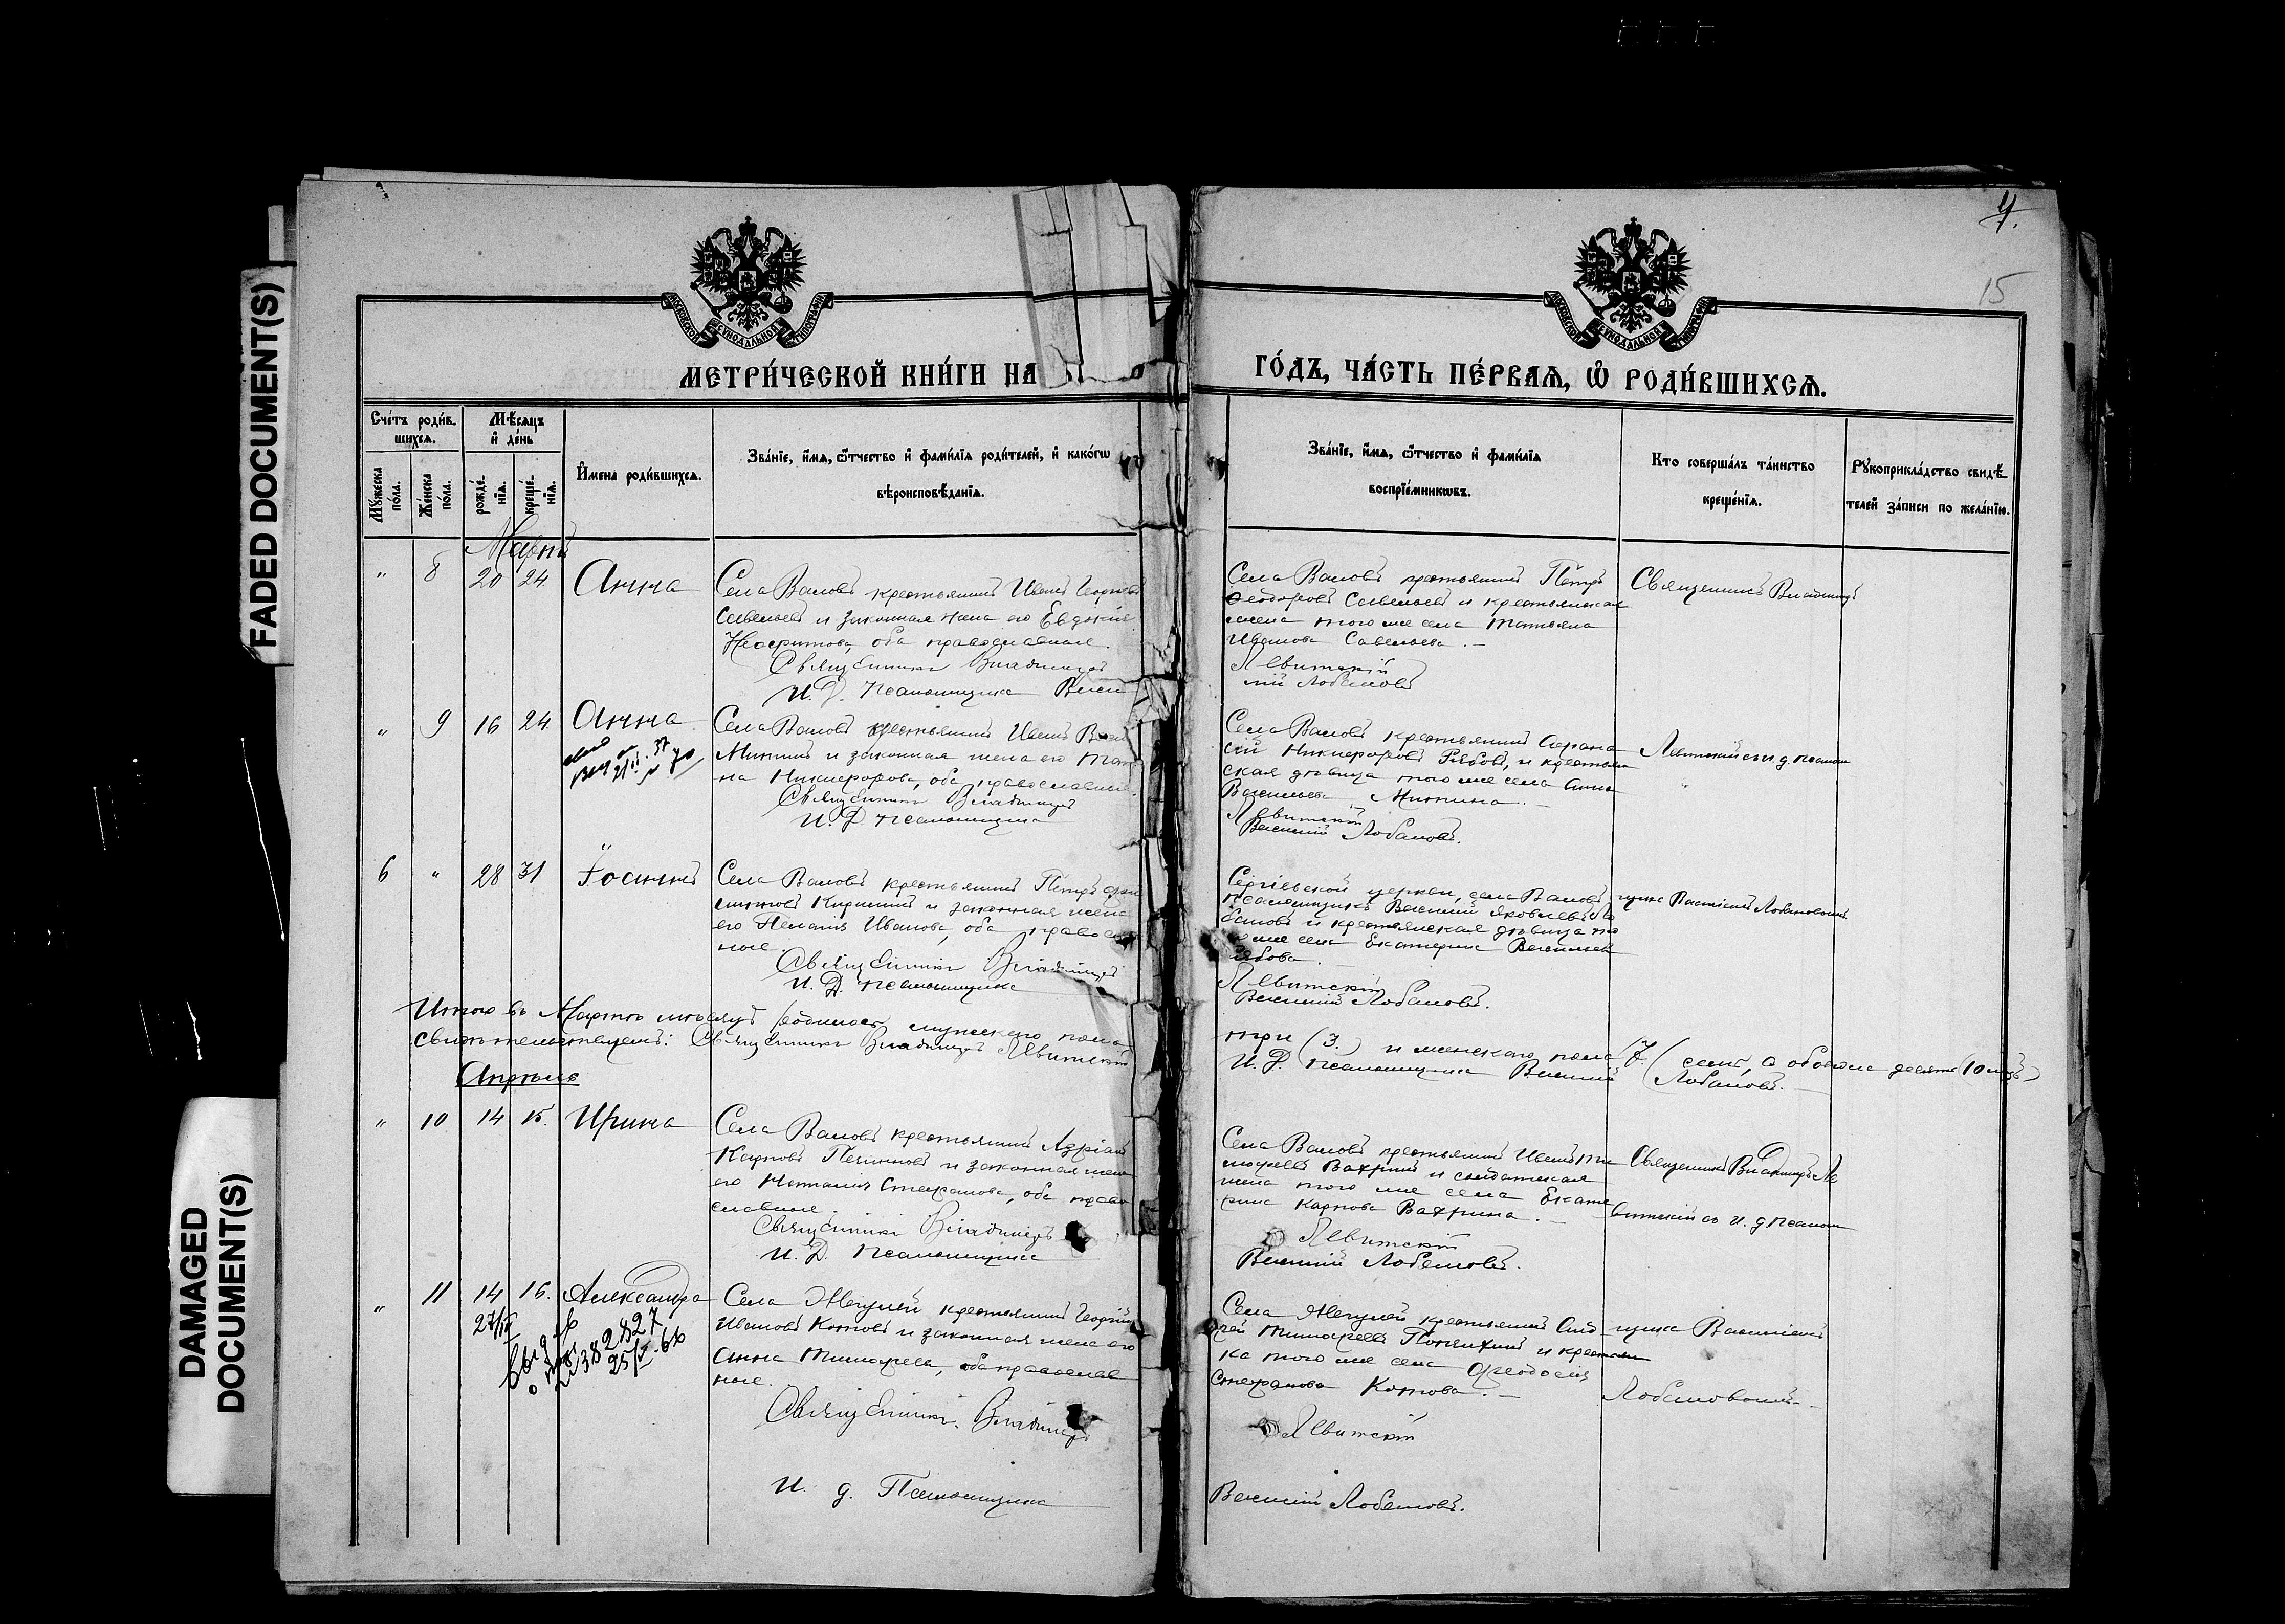 FADED DOCUMENT(S)
DAMAGED
DOCUMENT(S)
4.
15
МОСКОВСКОЙ СѴНОДАЛЬНОЙ ТИПОГРАФІИ
МОСКОВСКОЙ СѴНОДАЛЬНОЙ ТИПОГРАФІИ
МЕТРИ́ЧЕСКОЙ КНИ́ГИ НА
ГО́ДЪ, ЧА́СТЬ ПЕ́РВАѦ, Ѡ҆ РОДИ́ВШИХСѦ.
Сче́тъ роди́в-
шихсѧ.
Мѣ́сѧцъ
и҆ де́нь
Мꙋ́жеска
по́ла.
Же́нска
по́ла.
рожде́-
нїѧ.
креще́-
нїѧ.
И҆мена̀ роди́вшихсѧ.
Зва́нїе, и҆́мѧ, ѻ҆́тчество и҆ фами́лїѧ роди́телей, и҆ како́гѡ
вѣроисповѣ́данїѧ.
Зва́нїе, и҆́мѧ, ѻ҆́тчество и҆ фами́лїѧ
воспрїе́мникѡвъ.
Кто̀ соверша́лъ та́инство
креще́нїѧ.
Рꙋкоприкла́дство свидѣ́-
телей за́писи по жела́нїю.
Мартъ
" 8 20 24 Анна
Села Валовъ крестьянинъ Иванъ
Савельевъ и законная жена его Евдокія
оба православные.
Священникъ Владимиръ
И. Д. псаломщика Васи
Села Валовъ крестьянинъ Петръ
Ѳеодоровъ Савельевъ и крестьянская
жена того же села Татьяна
Иванова Савельева. -
Левитскій
лій Лобановъ
Священникъ Владимиръ
" 9 16 24 Анна
Села Валовъ крестьянинъ Иванъ
Митинъ и законная жена его Тать
на Никифорова, оба православные.
Священникъ Владимиръ
И. Д. псаломщика
Села Валовъ крестьянинъ Афана
сій Никифоровъ Рябовъ, и крестьян
ская дѣвица того же села Анна
Васильева Митина. -
Левитскій
Василій Лобановъ.
Левитскій съ и. д. псалом
6 " 28 31 Іоаннъ
Села Валовъ крестьянинъ Петръ
и законная жена
его Пелагія Иванова, оба православ
ные.
Священникъ Владимиръ
И. Д. псаломщика
Сергіевской церкви, села Валовъ
псаломщикъ Василій Яковлевъ Ло
бановъ и крестьянская дѣвица то
го же села Екатерина Васильева
Рябова.
Левитскій
Василій Лобановъ.
щика Василіемъ Лобановымъ
Итого въ Мартѣ мѣсяцѣ родилось мужескаго пола
три (3.) и женскаго пола 7. (семь, а обоего пола десять (10 лицъ)
свидѣтельствуемъ: Священникъ Владимиръ Левитскій
И. Д. Псаломщика Василій Лобановъ. -
Апрѣль
" 10 14 15. Ирина
Села Валовъ крестьянинъ Адріанъ
Карповъ и законная жена
его Наталія Стефанова, оба право
славные.
Священникъ Владимиръ
И. Д. псаломщика
Села Валовъ крестьянинъ Иванъ Ти
моѳеевъ Вахринъ и солдатская
жена того же села Екате
рина Карпова Вахрина. -
Левитскій
Василій Лобановъ.
Священникъ Владимиръ Ле
витскій со и. д. псалом
" 11 14 16. Александра
2382827
Села Жегулей крестьянинъ Георгій
Ивановъ Котовъ и законная жена его
Анна Тимоѳеева, оба православ
ные.
Священникъ Владимиръ
И. д. Псаломщика
Села Жегулей крестьянинъ Анд
рей Тимоѳеевъ и крестьян
ка того же села Ѳеодосія
Стефанова Котова. -
Левитскій
Василій Лобановъ.
щика Василіемъ
Лобановымъ. -